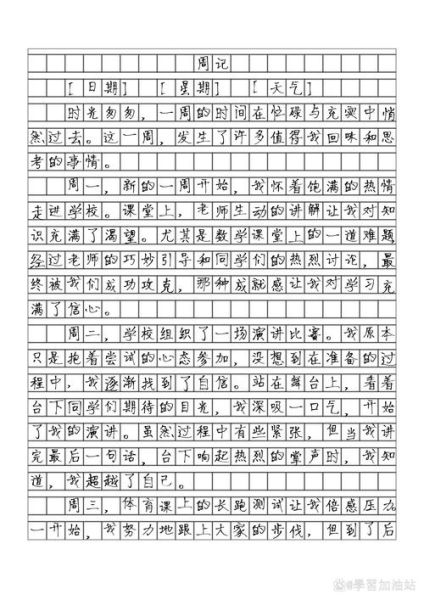 周记
[日期] [星期] [天气]
时光匆匆，一周的时间在忙碌与充实中悄
然过去。这一周，发生了许多值得我回味和思
考的事情。
周一，新的一周开始，我怀着饱满的热情
走进学校。课堂上，老师生动的讲解让我对知
识充满了渴望。尤其是数学课堂上的一道难题
经过老师的巧妙引导和同学们的热烈讨论，最
终被我们成功攻克，那种成就感让我对学习充
满了信心。
周二，学校组织了一场演讲比赛。我原本
只是抱着尝试的心态参加，没想到在准备的过
程中，我逐渐找到了自信。站在舞台上，看着
台下同学们期待的目光，我深吸一口气，开始
了我的演讲。虽然过程中有些紧张，但当我讲
完最后一句话，台下响起热烈的掌声时，我知
道，我超越了自己。
周三，体育课上的长跑测试让我倍感压力。
一开始，我努力地跟上大家的步伐，但到了后
@學習加油站